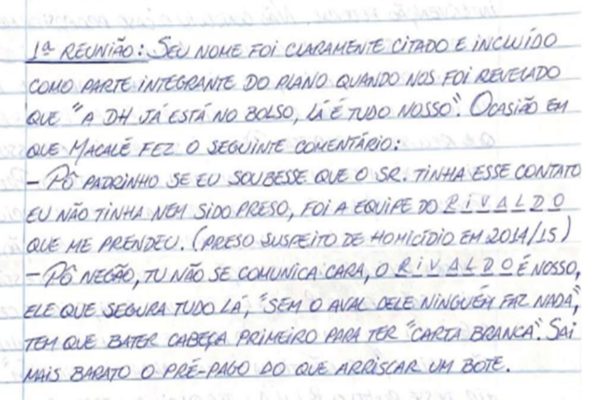 1ª REUNIÃO: SEU NOME FOI CLARAMENTE CITADO E INCLUÍDO
COMO PARTE INTEGRANTE DO PLANO QUANDO NOS FOI REVELADO
QUE "A DH JÁ ESTÁ NO BOLSO, LÁ É TUDO NOSSO". OCASIÃO EM
QUE MACALÉ FEZ O SEGUINTE COMENTÁRIO:
- PÔ PADRINHO SE EU SOUBESSE QUE O SR. TINHA ESSE CONTATO
EU NÃO TINHA NEM SIDO PRESO, FOI A EQUIPE DO RIVALDO
QUE ME PRENDEU. (PRESO SUSPEITO DE HOMICÍDIO EM 2014/15)
- PÔ NEGÃO, TU NÃO SE COMUNICA CARA, O RIVALDO É NOSSO,
ELE QUE SEGURA TUDO LÁ, "SEM O AVAL DELE NINGUÉM FAZ NADA",
TEM QUE BATER CABEÇA PRIMEIRO PARA TER "CARTA BRANCA". SAI
MAIS BARATO O PRÉ-PAGO DO QUE ARRISCAR UM BOTE.